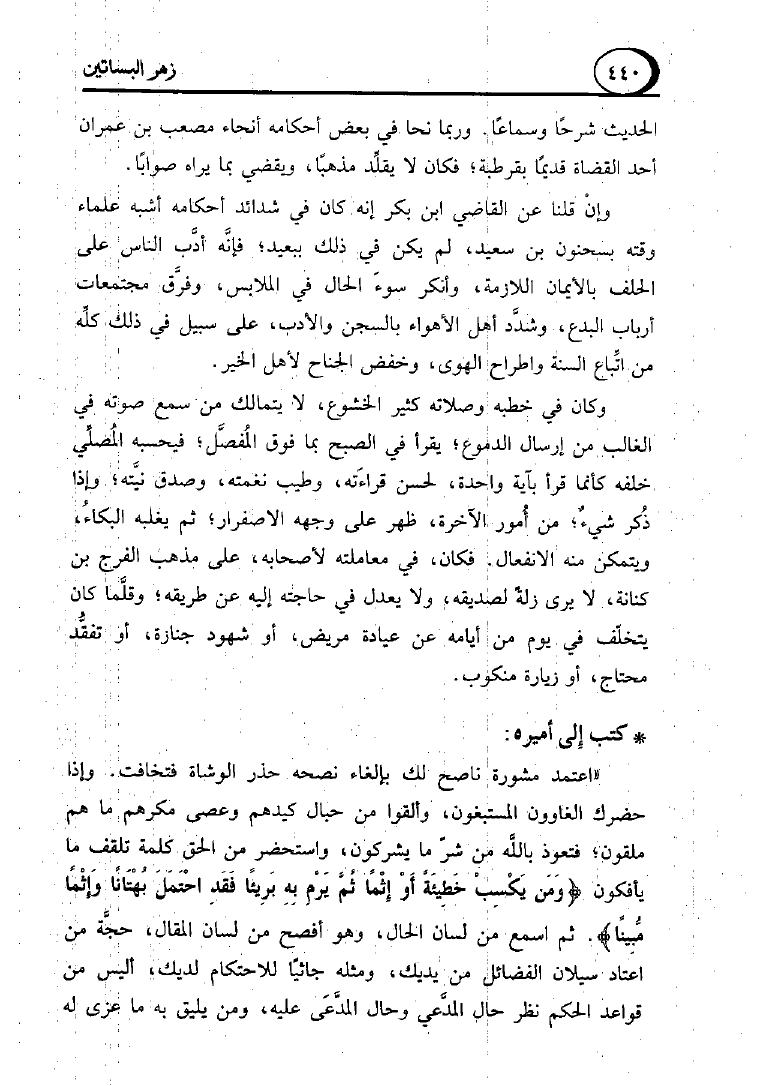 ٤٤٠
زهر البساتين
الحديث شرحًا وسماعًا. وربما نحا في بعض أحكامه أنحاء مصعب بن عمران
أحد القضاة قديمًا بقرطبة؛ فكان لا يقلِّد مذهبًا، ويقضي بما يراه صوابًا.
وإنْ قلنا عن القاضي ابن بكر إنه كان في شدائد أحكامه أشبه علماء
وقته بسحنون بن سعيد، لم يكن في ذلك ببعيد؛ فإنَّه أدَّب الناس على
الحلف بالأيمان اللازمة، وأنكر سوءَ الحال في الملابس، وفرَّق مجتمعات
أرباب البدع، وشدَّد أهل الأهواء بالسجن والأدب، على سبيل في ذلك كلِّه
من اتِّباع السنة واطراح الهوى، وخفض الجناح لأهل الخير.
وكان في خطبه وصلاته كثير الخشوع، لا يتمالك من سمع صوته في
الغالب من إرسال الدموع؛ يقرأ في الصبح بما فوق المُفصَّل؛ فيحسبه المُصلِّي
خلفه كأنما قرأ بآية واحدة، لحسن قراءَته، وطيب نغمته، وصدق نيَّته؛ وإذا
ذُكر شيءٌ؛ من أُمور الآخرة، ظهر على وجهه الاصفرار؛ ثم يغلبه البكاءُ،
ويتمكن منه الانفعال. فكان، في معاملته لأصحابه، على مذهب الفرج بن
كنانة، لا يرى زلةً لصديقه، ولا يعدل في حاجته إليه عن طريقه؛ وقلَّما كان
يتخلّف في يوم من أيامه عن عيادة مريض، أو شهود جنازة، أو تفقُّد
محتاج، أو زيارة منكوب.
* كتب إلى أميره:
«اعتمد مشورة ناصح لك بإلغاء نصحه حذر الوشاة فتخافت. وإذا
حضرك الغاوون المستبغون، وألقوا من حبال كيدهم وعصى مكرهم ما هم
ملقون؛ فتعوذ باللَّه من شرّ ما يشركون، واستحضر من الحق كلمة تلقف ما
يأفكون ﴿وَمَن يَكْسِبْ خَطِيئَةً أَوْ إِثْمًا ثُمَّ يَرْمِ بِهِ بَرِيئًا فَقَدِ احْتَمَلَ بُهْتَانًا وَإِثْمًا
مُّبِينًا﴾. ثم اسمع من لسان الحال، وهو أفصح من لسان المقال، حجَّة من
اعتاد سيلان الفضائل من يديك، ومثله جاثيًا للاحتكام لديك، أليس من
قواعد الحكم نظر حال المدَّعي وحال المدَّعَى عليه، ومن يليق به ما عزى له